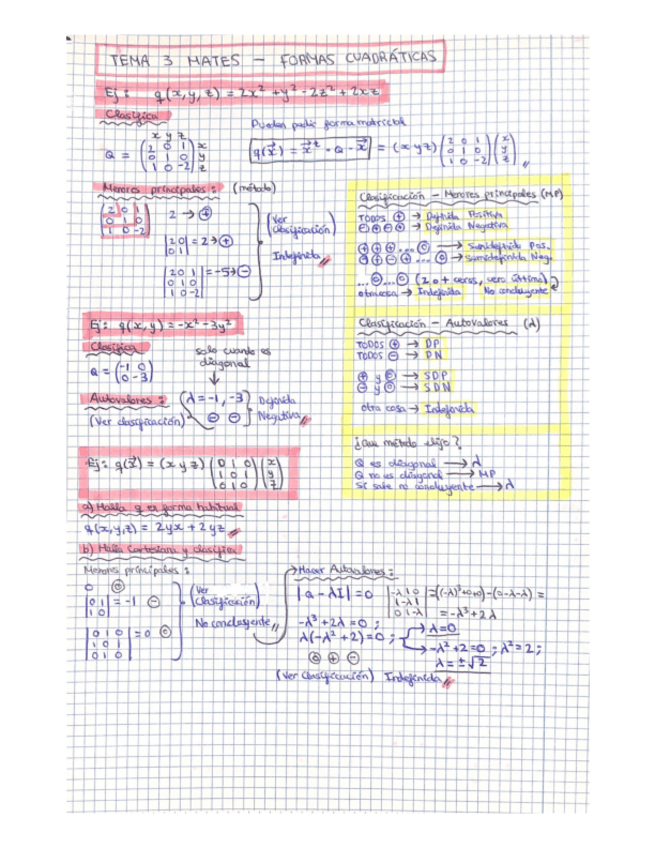 TEMA 3 MATES — FORMAS CUADRÁTICAS
Ej: q(x,y,z) = 2x² + y² - 2z² + 2xz
Clasifica
Pueden pedir forma matricial
x y z
Q = (2 0 1) x
(0 1 0) y
(1 0 -2) z
q(x⃗) = x⃗ᵗ · Q · x⃗ = (x y z) (2 0 1) (x)
(0 1 0) (y)
(1 0 -2) (z)
Menores principales: (método)
(2 0 1)
(0 1 0)
(1 0 -2)
2 → ⊕
|2 0| = 2 → ⊕
|0 1|
|2 0 1| = -5 → ⊖
|0 1 0|
|1 0 -2|
(Ver clasificación)
Indefinida
Clasificación - Menores principales (MP)
TODOS ⊕ → Definida Positiva
⊖⊕⊖⊕ → Definida Negativa
→ Semidefinida Pos.
→ Semidefinida Neg.
(1 o + ceros, cero último)
otra cosa → Indefinida No concluyente
Ej: q(x,y) = -x² - 3y²
Clasifica
Q = (-1 0)
(0 -3)
solo cuando es diagonal
Autovalores: (λ = -1, -3) Definida
(Ver clasificación) ⊖ ⊖ Negativa
Clasificación - Autovalores (λ)
TODOS ⊕ → DP
TODOS ⊖ → DN
⊕ y ⓪ → SDP
⊖ y ⓪ → SDN
otra cosa → Indefinida
¿Que método elijo?
Q es diagonal → λ
Q no es diagonal → MP
Si sale no concluyente → λ
Ej: q(x⃗) = (x y z) (0 1 0) (x)
(1 0 1) (y)
(0 1 0) (z)
a) Halla q en forma habitual
q(x,y,z) = 2yx + 2yz
b) Halla y clasifica
Menores principales:
0 ⓪
|0 1| = -1 ⊖
|1 0|
|0 1 0| = 0 ⓪
|1 0 1|
|0 1 0|
(Ver clasificación)
No concluyente
→ Hacer Autovalores:
|Q - λI| = 0
|-λ 1 0| = ((-λ)³+0+0) - (0-λ-λ) =
|1 -λ 1|
|0 1 -λ| = -λ³ + 2λ
-λ³ + 2λ = 0 ;
λ(-λ² + 2) = 0 ; → λ = 0
→ -λ² + 2 = 0 ; λ² = 2 ;
λ = ±√2
⓪ ⊕ ⊖
(Ver Clasificación) Indefinida